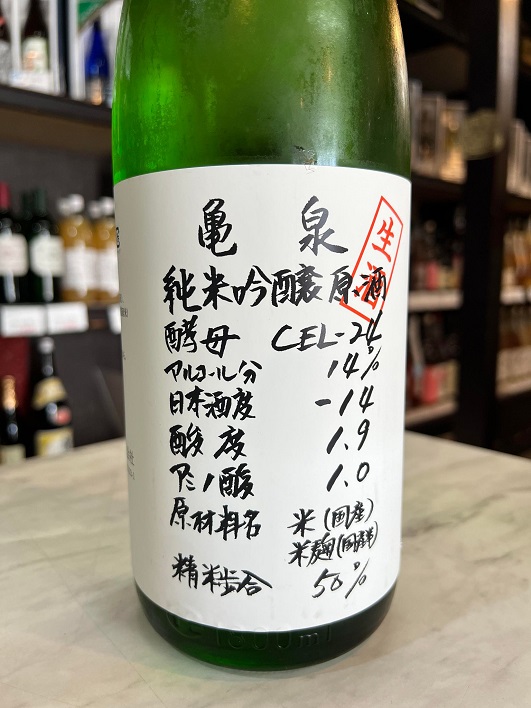 亀泉
生酒
純米吟醸原酒
酵母 CEL-24
アルコール分 14%
日本酒度 -14
酸度 1.9
アミノ酸 1.0
原材料名 米(国産)
米麹(国産米)
精米歩合 50%